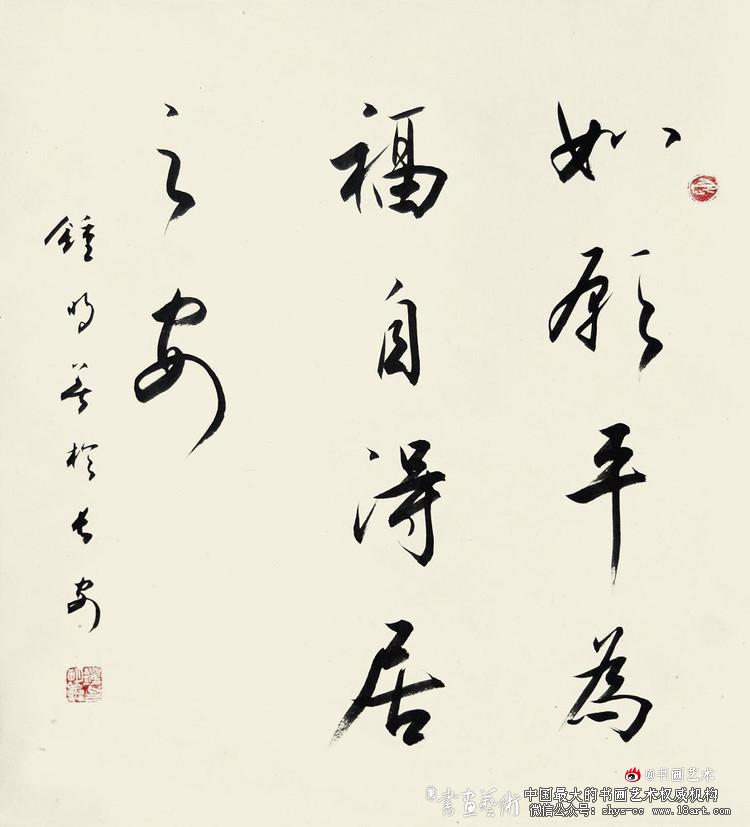 如願平為
福自得居
之安
鍾明善於長安
@书画艺术
書畫藝術
中国最大的书画艺术权威机构
微信公众号：shys-cc www.18art.com